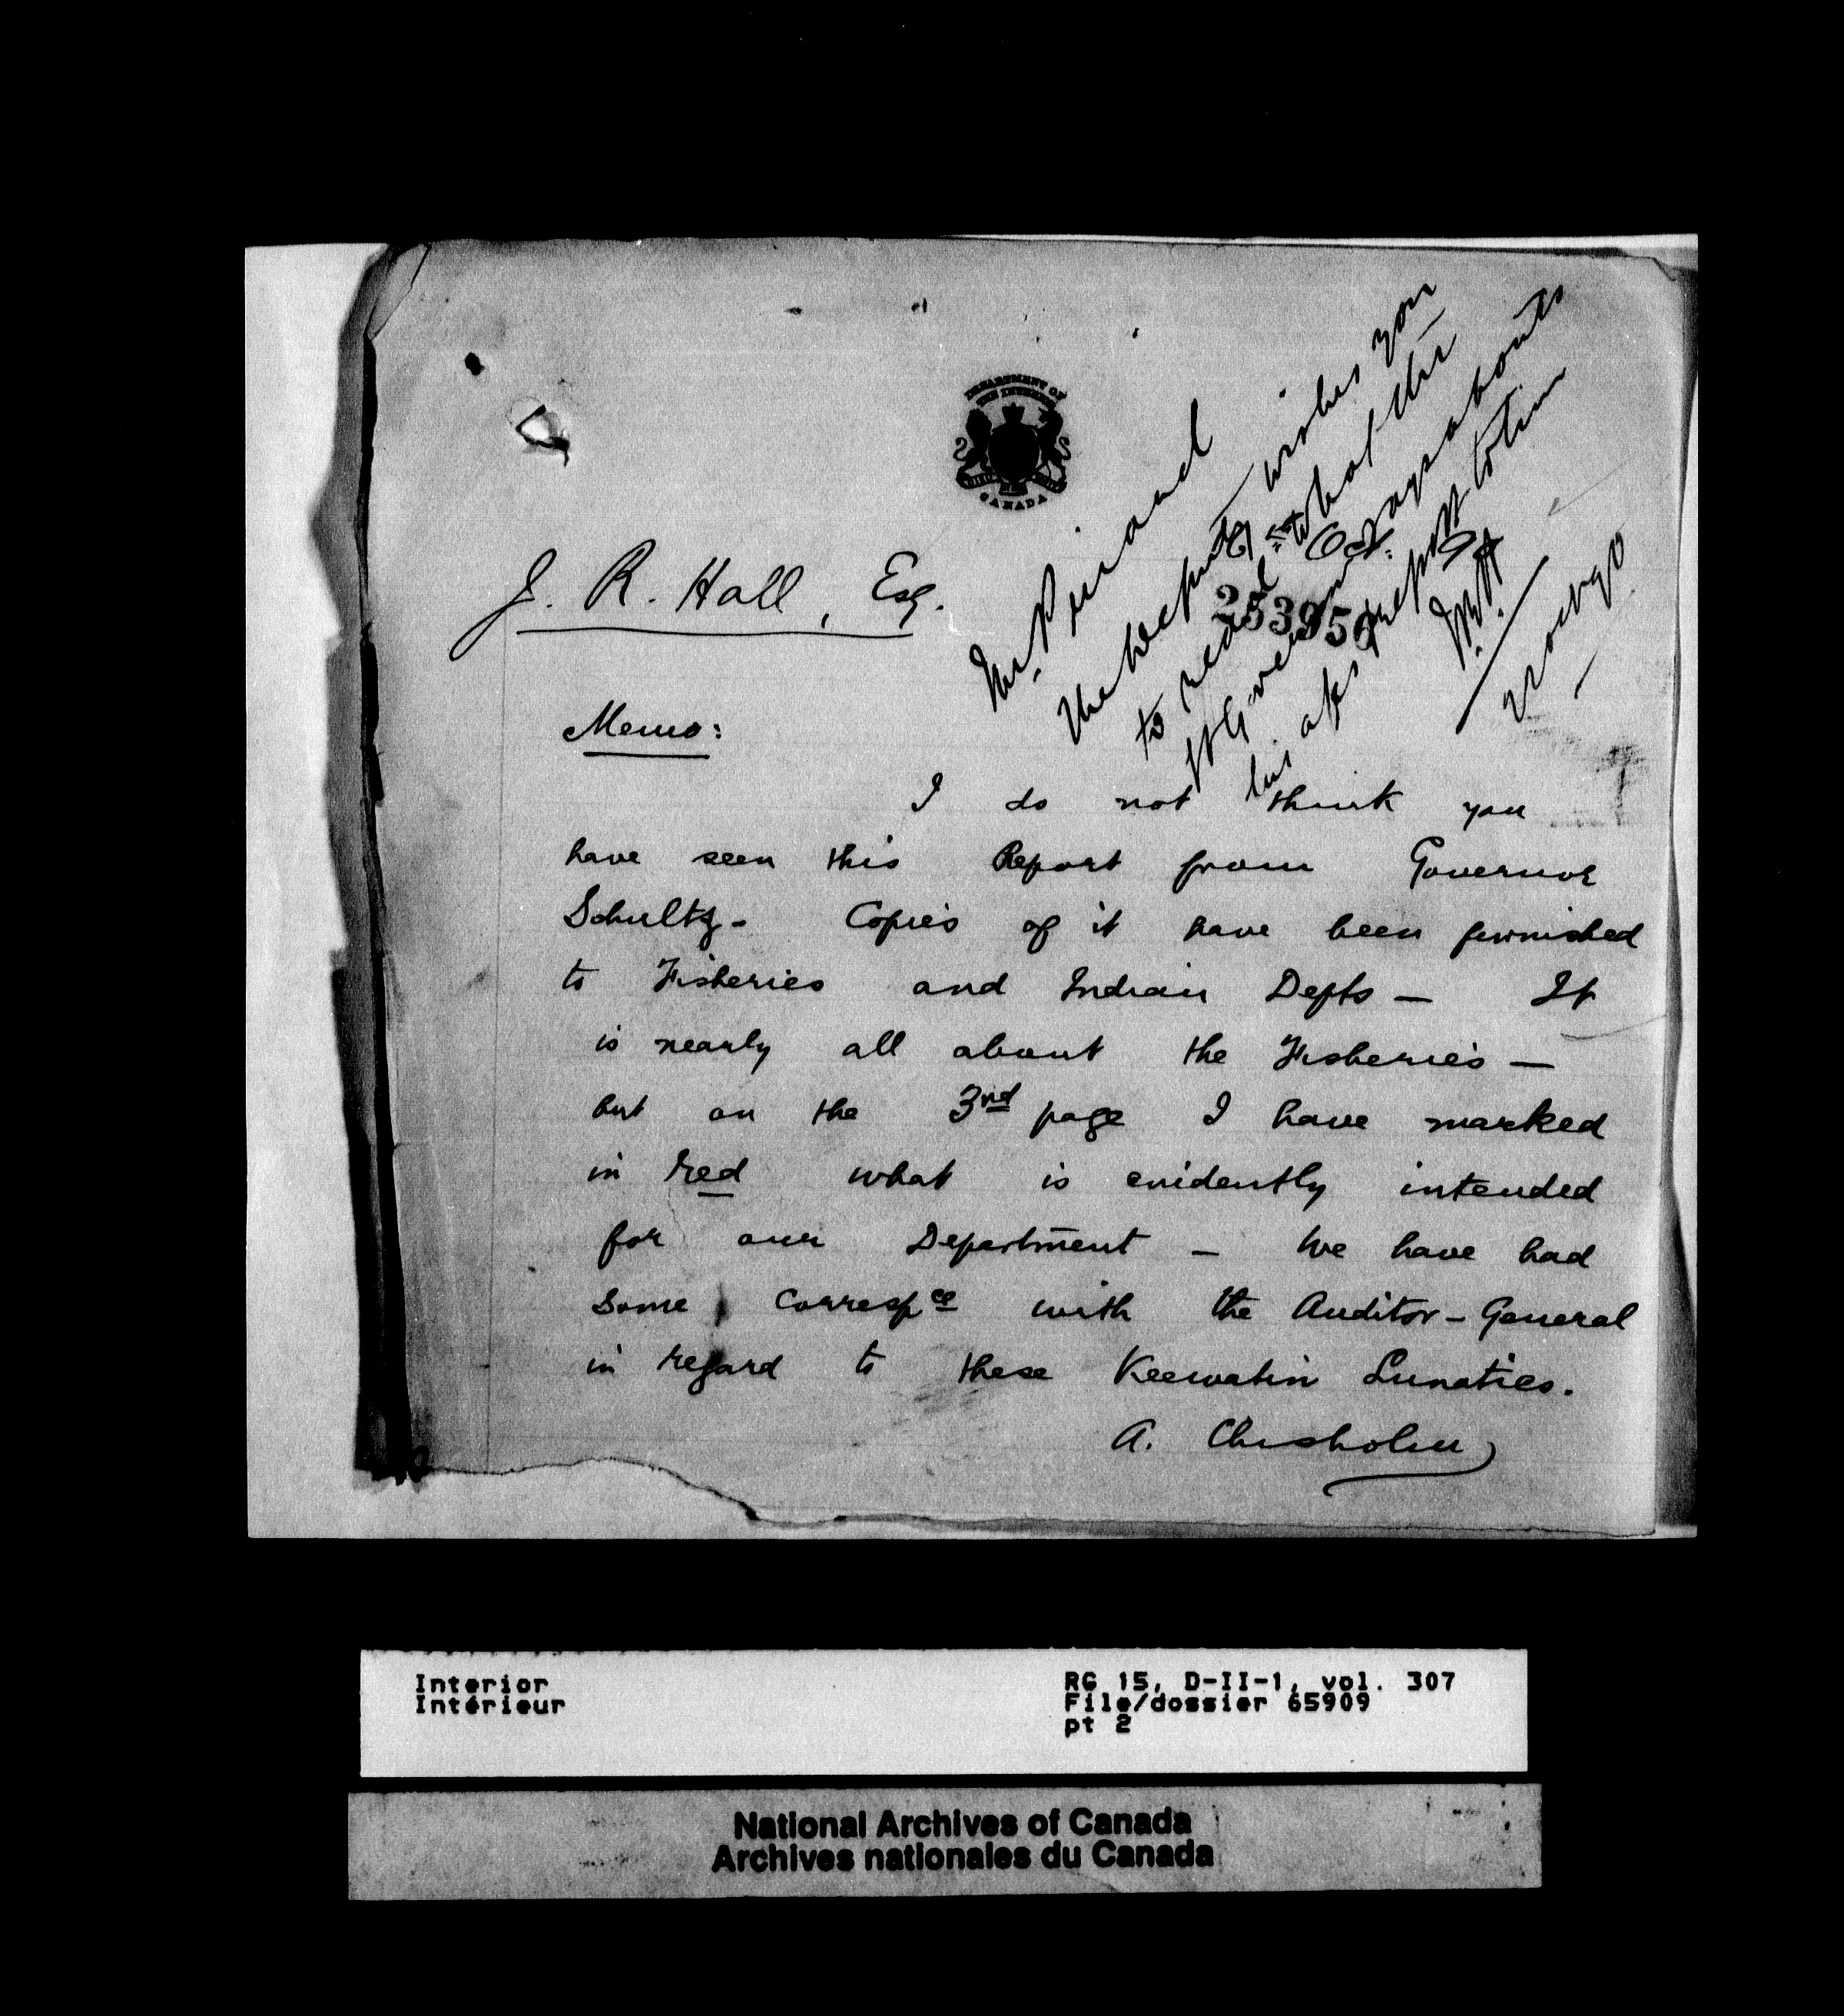 DEPARTMENT OF
THE INTERIOR
CANADA
Oct. 90
253950
J. R. Hall, Esq.
Mr Pereira
The Deputy wishes you
to read what the
Lt Governor says about
his report to him
J.R.H.
21 Oct 90
Memo:
I do not think you
have seen this Report from Governor
Schultz - Copies of it have been furnished
to Fisheries and Indian Depts — It
is nearly all about the Fisheries —
but on the 3rd page I have marked
in red what is evidently intended
for our Department — We have had
some correspce with the Auditor-General
in regard to these Keewatin Lunatics.
A. Chisholm
Interior
Intérieur
RG 15, D-II-1, vol. 307
File/dossier 65909
pt 2
National Archives of Canada
Archives nationales du Canada